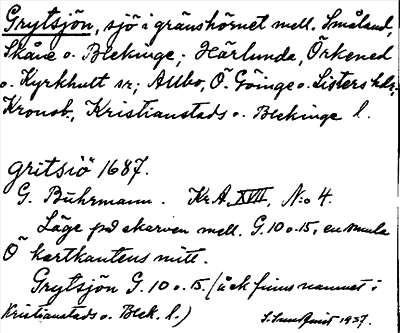 Grytsjön, sjö i gränshörnet mell. Småland,
Skåne o. Blekinge; Härlunda, Örkened
o. Kyrkhult sn; Allbo, Ö Göinge o. Listers hds;
Kronob., Kristianstads o. Blekinge l.
gritsiö 1687.
G. Buhrmann. Kr.A. XVII, N:o 4.
Läge på skarven mell. G. 10 o. 15, en smula
Ö kartkantens mitt.
Grytsjön G. 10 o. 15. (äck finns namnet i
Kristianstads o. Blek. l.)
S. Sundquist 1927.